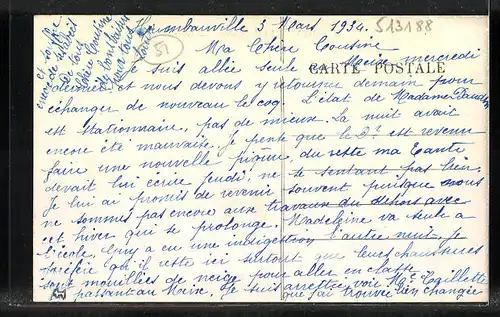 3 Mars 1934.
513188
51
Ma Chère Cousine
Je suis allée seule Meix mercredi
CARTE POSTALE
dernier et nous devons y retourner demain pour
échanger de nouveau le coq. L'état de Madame
est stationnaire, pas de mieux. La nuit avait
encore été mauvaise. Je pense que le Dr est revenu
faire une nouvelle piqure, du reste ma tante
devait lui écrire jeudi, ne se sentant pas bien.
Je lui ai promis de revenir souvent puisque nous
ne sommes pas encore aux travaux du dehors avec
cet hiver qui se prolonge. Madeleine va seule à
l'école, a eu une indigestion l'autre nuit, je
préfère qu'il reste ici surtout que leurs chaussures
sont mouillées de neige pour aller en classe.
passant au Meix, je suis arrêtée voir Me
que j'ai trouvée bien changée
et
encore de
de tous
Chère Cousine
pour tous